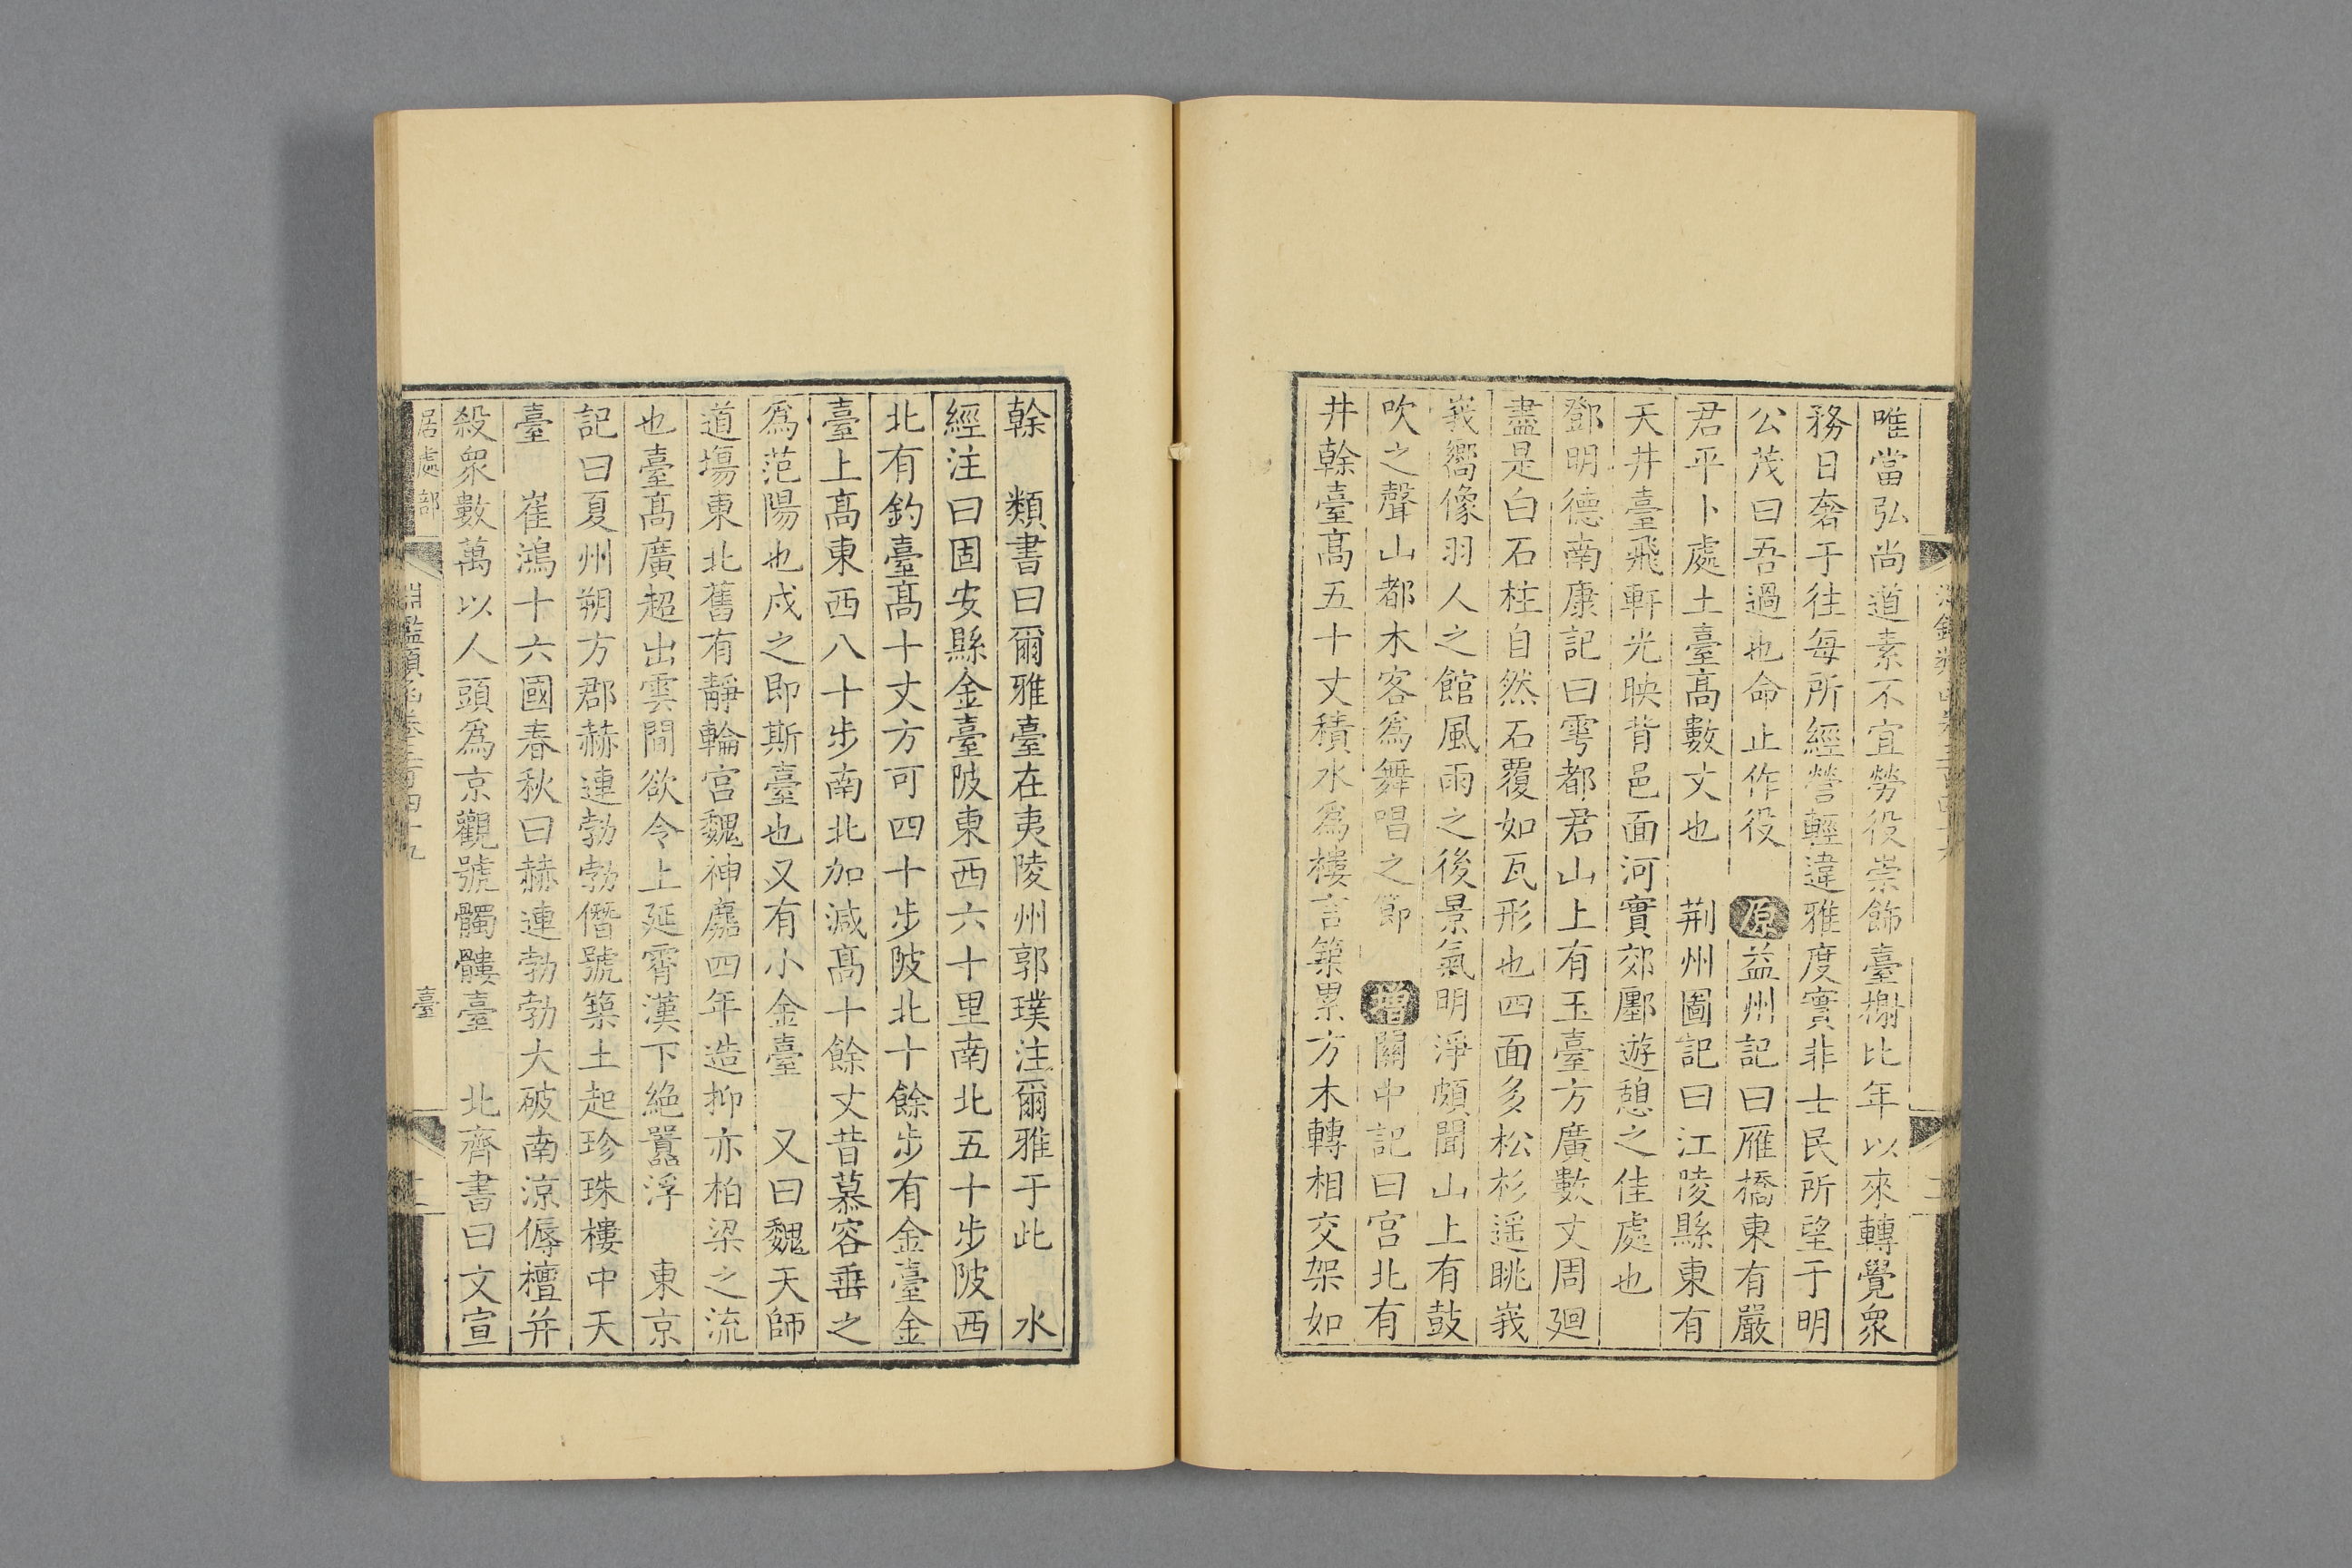 唯當弘尚道素不宜勞役崇飾臺榭比年以來轉覺衆
務日奢于往每所經營輕違雅度實非士民所望于明
公茂曰吾過也命止作役 原益州記曰雁橋東有嚴
君平卜處土臺高數丈也 荆州圖記曰江陵縣東有
天井臺飛軒光映背邑面河實郊鄽遊憩之佳處也
鄧明德南康記曰雩都君山上有玉臺方廣數丈周廻
盡是白石柱自然石覆如瓦形也四面多松杉遥眺峩
峩嚮像羽人之館風雨之後景氣明淨頗聞山上有鼓
吹之聲山都木客爲舞唱之節 增關中記曰宫北有
井幹臺高五十丈積水爲樓言築累方木轉相交架如
幹 類書曰爾雅臺在夷陵州郭璞注爾雅于此 水
經注曰固安縣金臺陂東西六十里南北五十步陂西
北有釣臺高十丈方可四十步陂北十餘步有金臺金
臺上高東西八十步南北加減高十餘丈昔慕容垂之
爲范陽也戍之即斯臺也又有小金臺 又曰魏天師
道塲東北舊有靜輪宫魏神䴥四年造抑亦柏梁之流
也臺高廣超出雲間欲令上延霄漢下絶囂浮 東京
記曰夏州朔方郡赫連勃勃僭號築土起珍珠樓中天
臺 崔鴻十六國春秋曰赫連勃勃大破南涼傉檀并
殺衆數萬以人頭爲京觀號髑髏臺 北齊書曰文宣
居處部 淵鑑類函卷三百四十九 臺 二